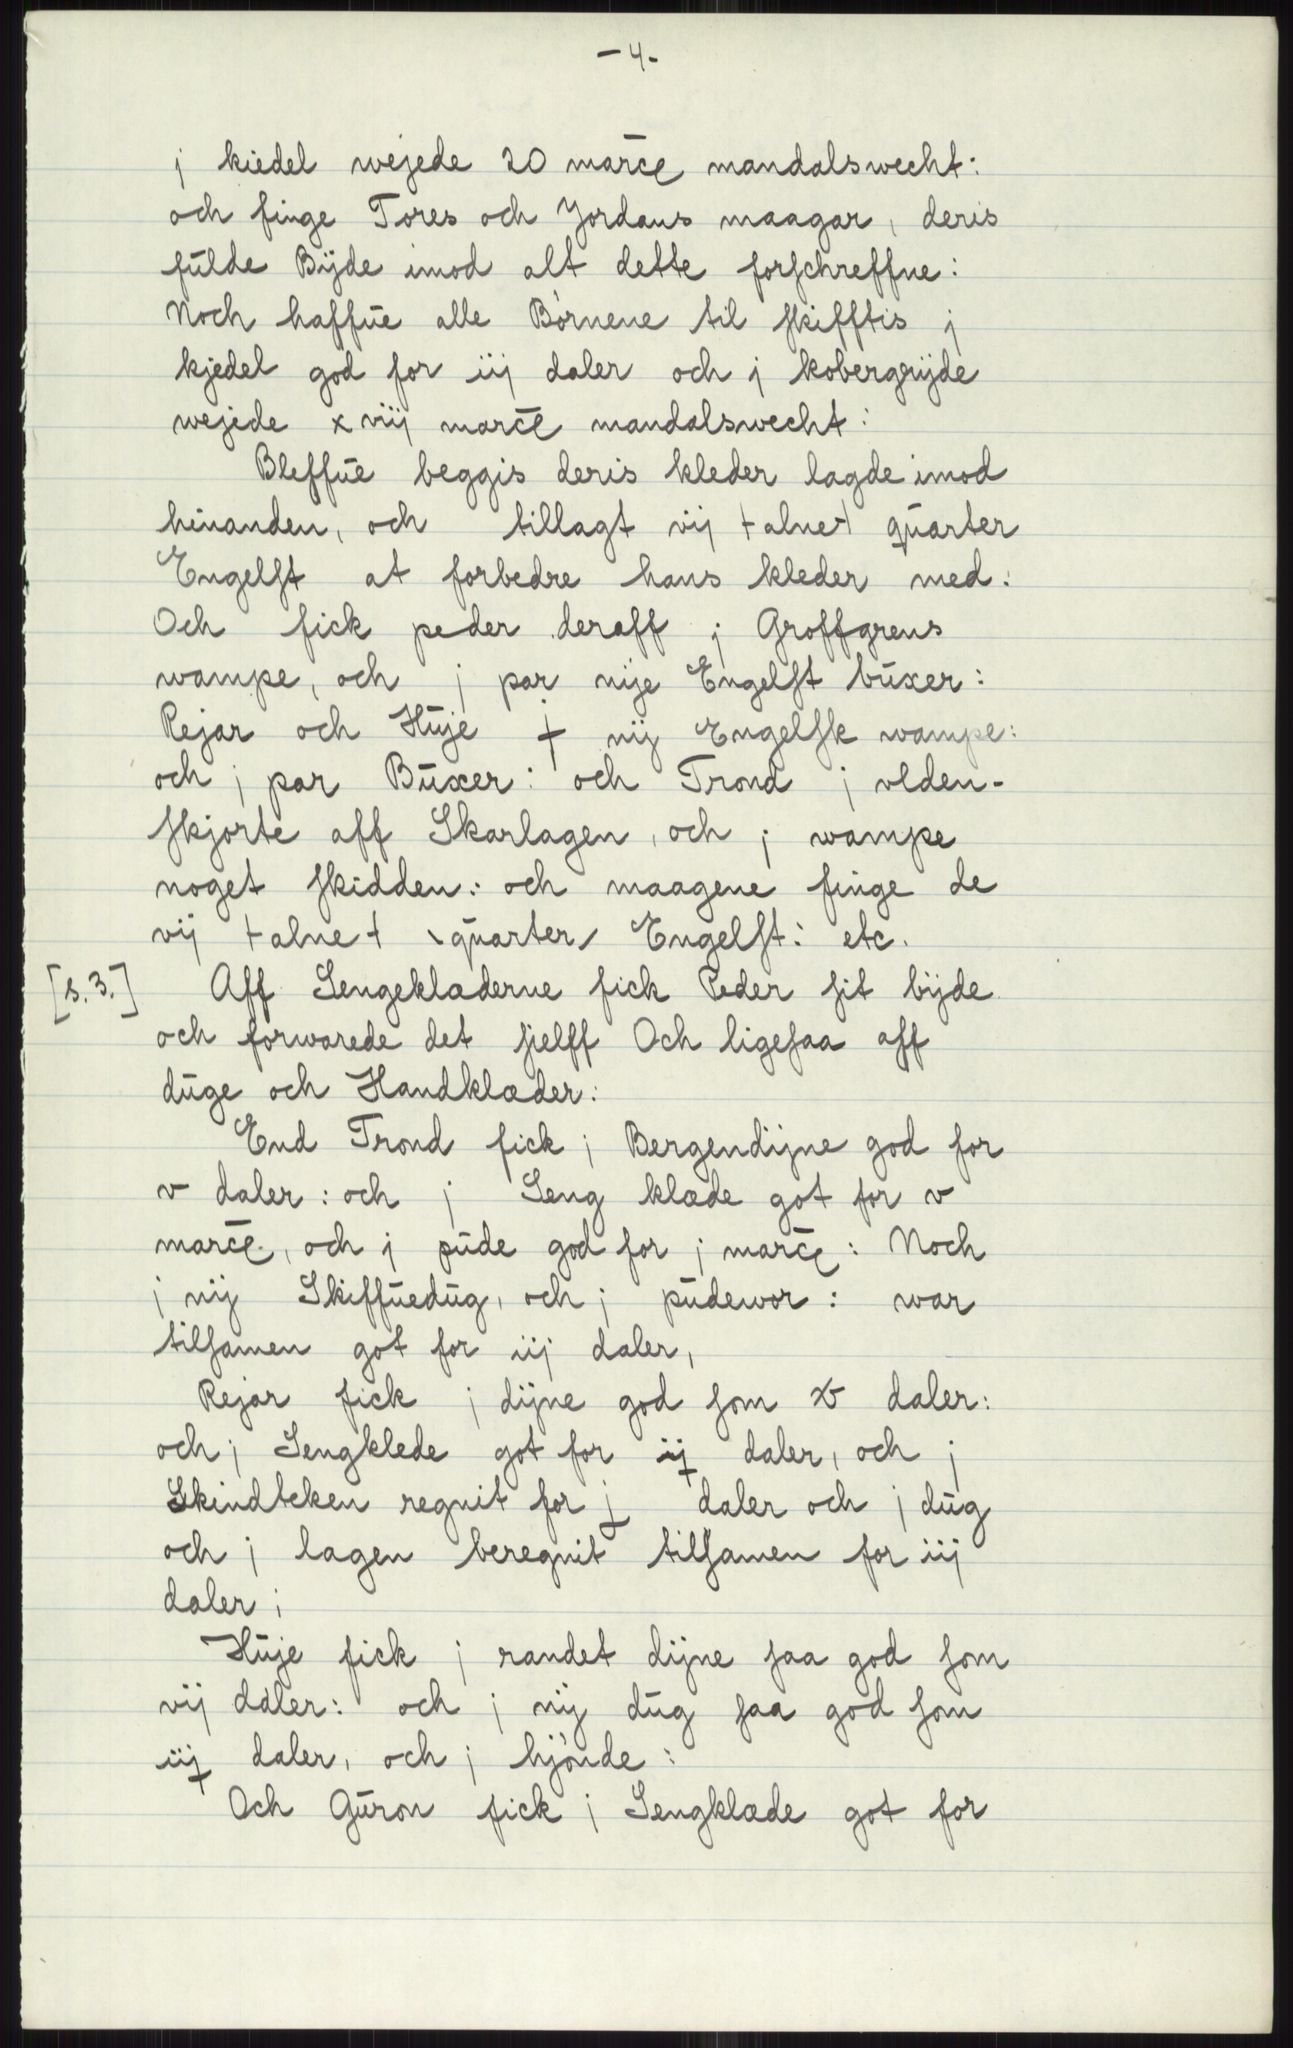 -4-
j kiedel wejede 20 marce mandalswecht:
och finge Tores och Jordans maagar, deris
fulde Bÿde imod alt dette forschreffne:
Noch haffue alle Börnene til skifftis j
kjedel god for iij daler och j kobergrÿde
wejede xviij marce mandalswecht:
Bleffue beggis deris kleder lagde imod
hinanden, och tillagt vij +alne+ quarter
Engelst at forbedre hans kleder med:
Och fick peder deraff j Groffgrens
wampe, och j par nije Engelst buxer:
Rejar och Huje j nij Engelsk wampe:
och j par Buxer: och Trond j vlden-
skjorte aff Skarlagen, och j wampe
noget skidden: och maagene finge de
vij +alne+ \quarter/ Engelst: etc.
[s. 3.] Aff Sengeklæderne fick Peder sit bÿde
och forwarede det sielff Och ligesaa aff
duge och Handklæder:
End Trond fick j Bergendijne god for
v daler: och j Seng klæde got for v
marce, och j pude god for j marce: Noch
j nij Skiffuedug, och j pudewor: war
tilsamen got for iij daler,
Rejar fick j dijne god som x daler:
och j Sengklede got for ij daler, och j
Skindteken regnit for j daler och j dug
och j lagen beregnit tilsamen for iij
daler;
Huje fick j randet dijne saa god som
vij daler: och j nij dug saa god som
iij daler, och j hjönde:
Och Guron fick j Sengklæde got for